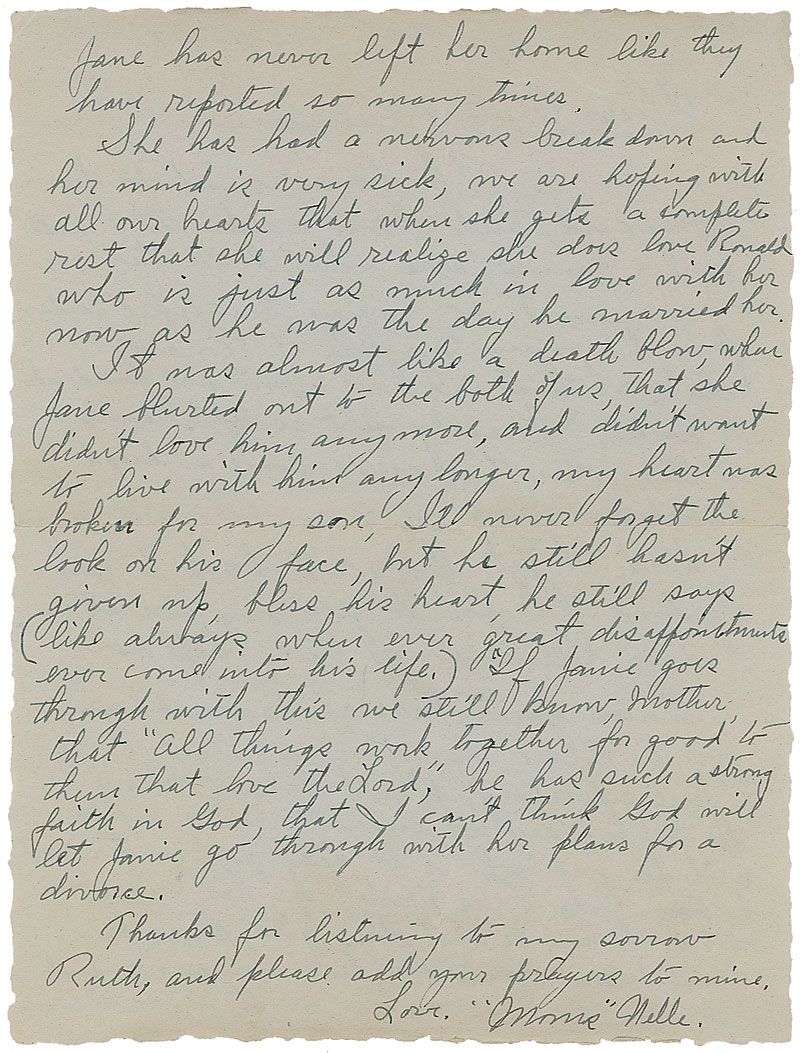 Jane has never left her home like they
have reported so many times.
She has had a nervous break down and
her mind is very sick, we are hoping with
all our hearts that when she gets a complete
rest that she will realize she does love Ronald
who is just as much in love with her
now as he was the day he married her.
It was almost like a death blow, when
Jane blurted out to the both of us, that she
didn't love him any more, and didn't want
to live with him any longer, my heart was
broken for my son, I'll never forget the
look on his face, but he still hasn't
given up, bless his heart, he still says
(like always when ever great disappointments
ever come into his life.) "If Janie goes
through with this we still know, Mother,
that "all things work together for good to
them that love the Lord", he has such a strong
faith in God, that I can't think God will
let Janie go through with her plans for a
divorce.
Thanks for listning to my sorrow
Ruth, and please add your prayers to mine.
Love. "Moms" Nelle.